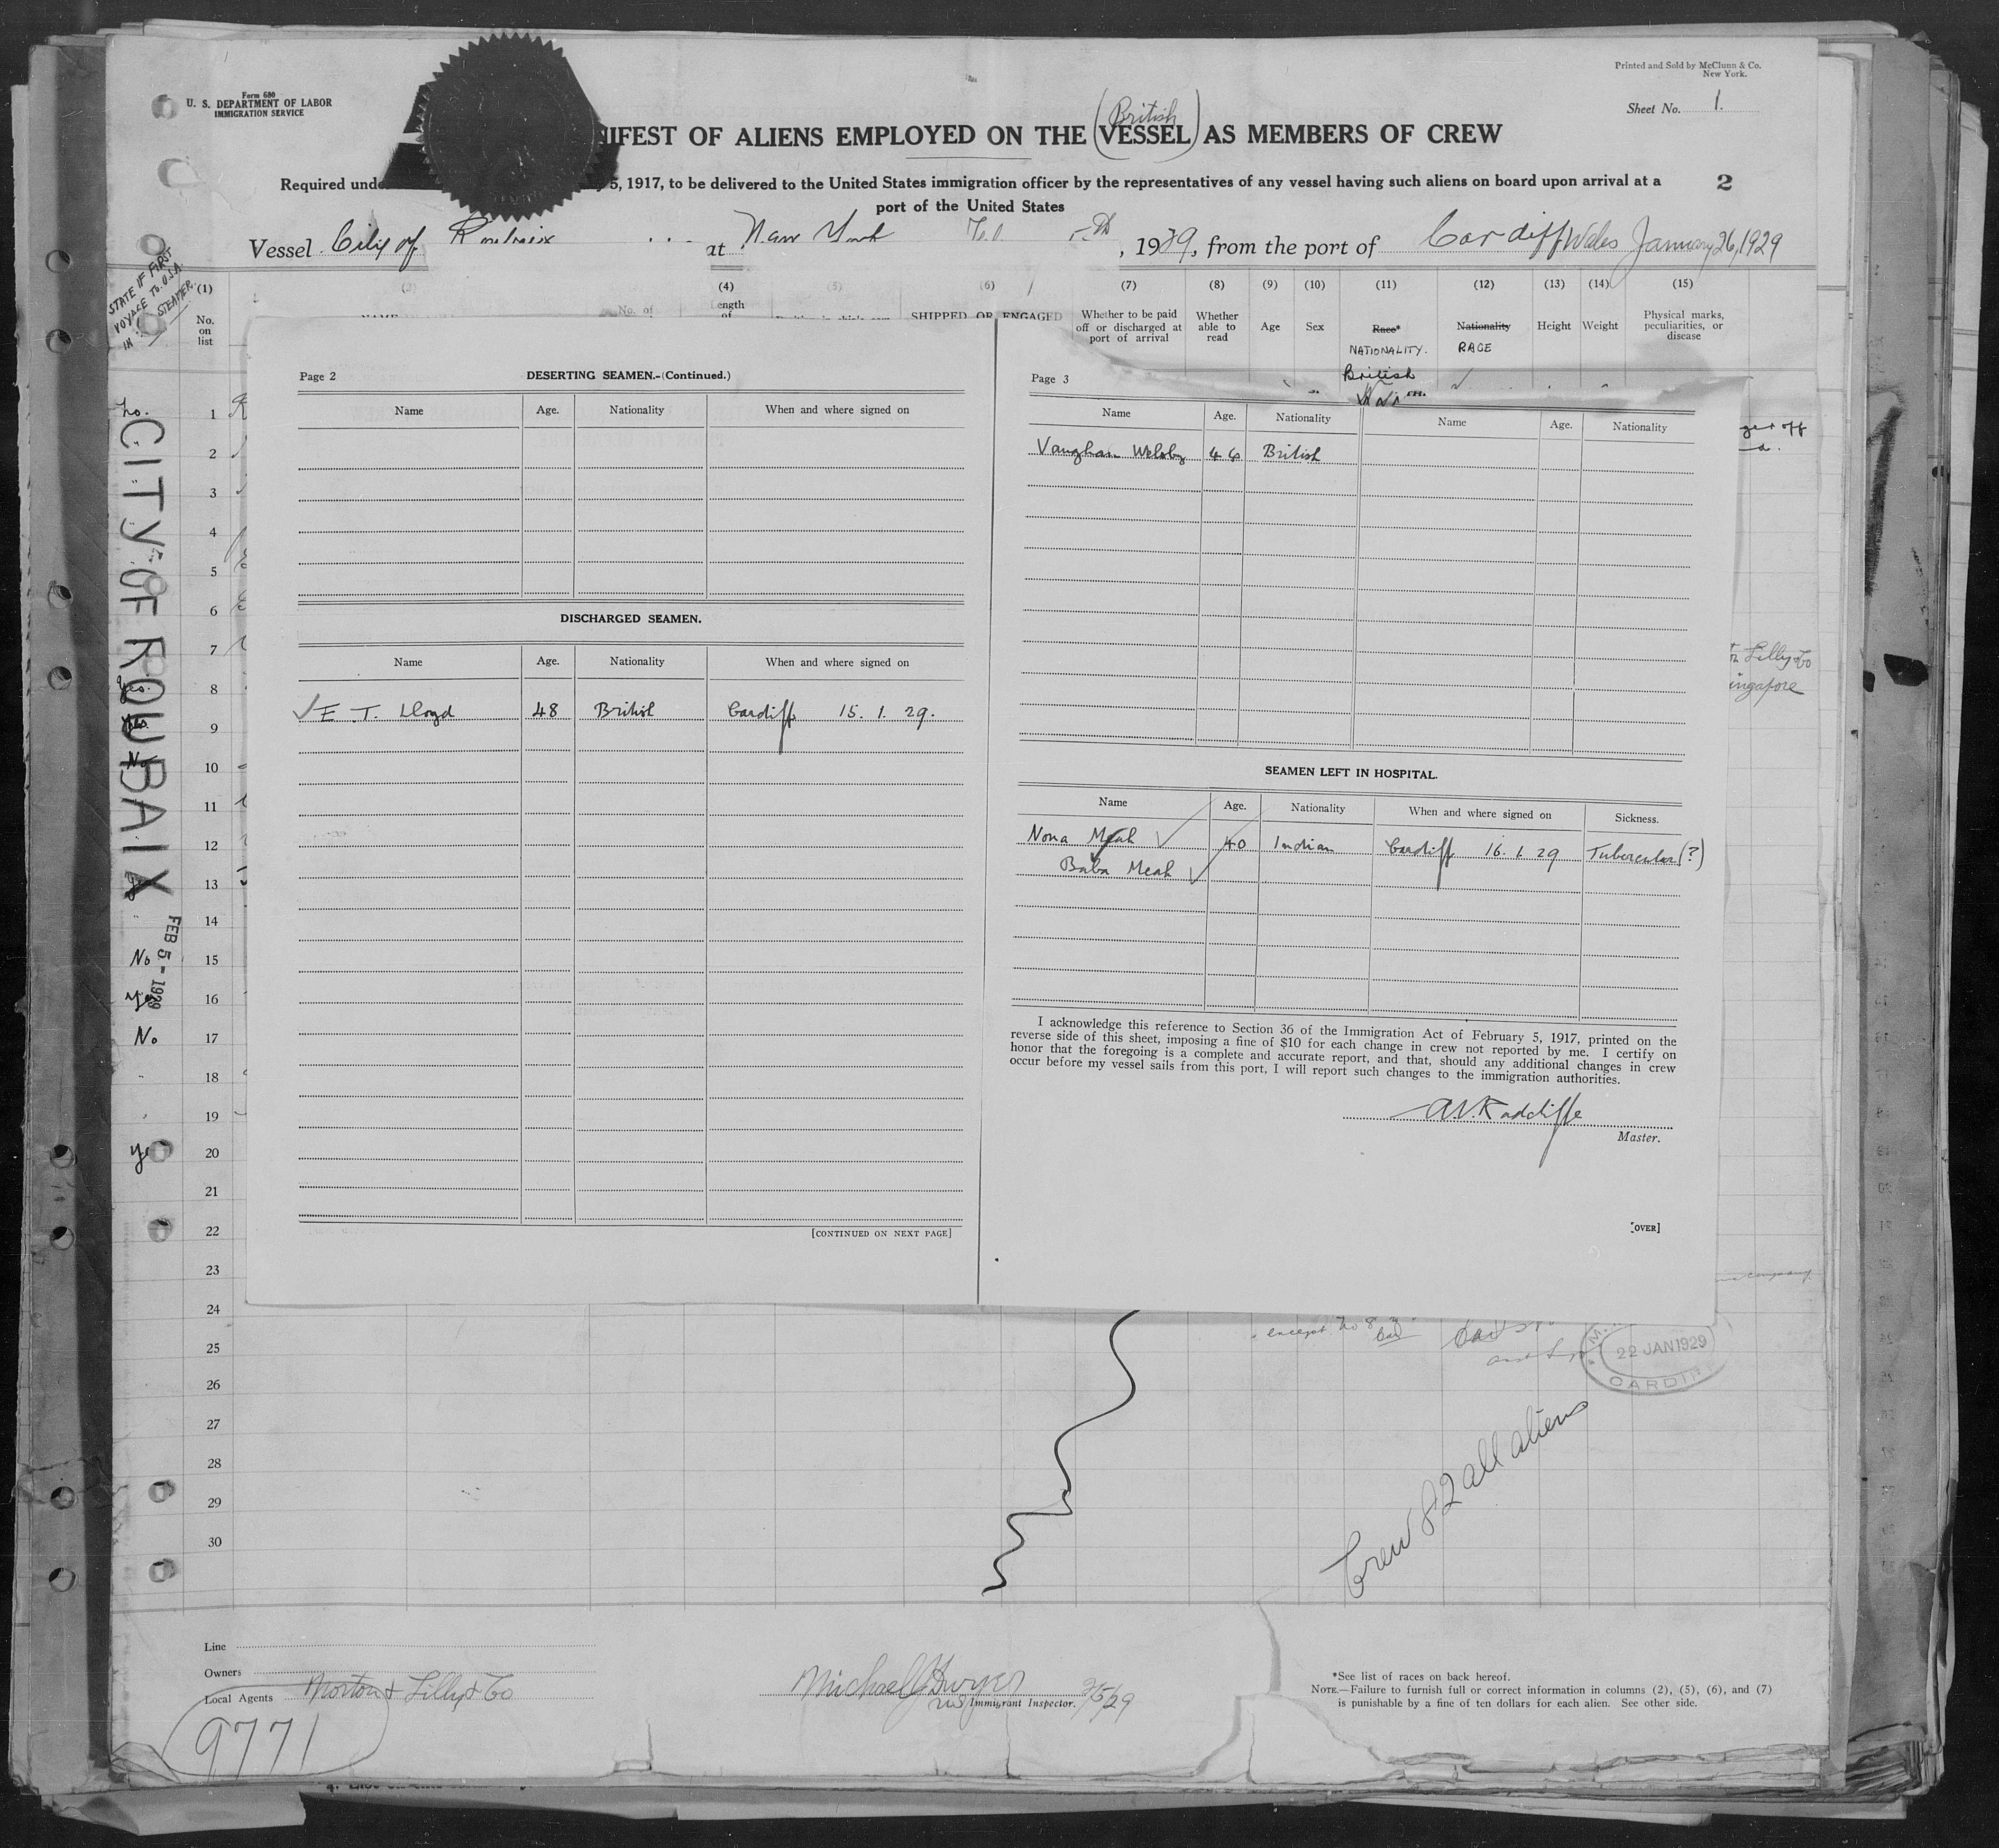 Printed and Sold by McClunn & Co.
New York.
Form 680
U. S. DEPARTMENT OF LABOR
IMMIGRATION SERVICE
Sheet No. 1.
British
IFEST OF ALIENS EMPLOYED ON THE (VESSEL) AS MEMBERS OF CREW
Required unde 5, 1917, to be delivered to the United States immigration officer by the representatives of any vessel having such aliens on board upon arrival at a
port of the United States
2
Vessel City of Roubaix at New York 5th, 1929, from the port of Cardiff Wales January 26, 1929
STATE IF FIRST
VOYAGE TO U.S.A.
IN STEAMER.
(1) (3) (4) (5) (6) (7) (8) (9) (10) (11) (12) (13) (14) (15)
No.
on
list
No. of
Length
of
SHIPPED OR ENGAGED
Whether to be paid
off or discharged at
port of arrival
Whether
able to
read
Age
Sex
Race*
NATIONALITY.
Nationality
RACE
Height
Weight
Physical marks,
peculiarities, or
disease
British
CITY OF ROUBAIX
FEB 5 - 1929
1
2
3
4
5
6
7
8
9
10
11
12
13
14
15
16
17
18
19
20
21
22
23
24
25
26
27
28
29
30
No.
Yes.
No
No
No
Page 2
DESERTING SEAMEN.-(Continued.)
Name Age. Nationality When and where signed on
DISCHARGED SEAMEN.
Name Age. Nationality When and where signed on
✓ E. T. Lloyd 48 British Cardiff 15. 1. 29.
[CONTINUED ON NEXT PAGE]
Page 3
Name Age. Nationality Name Age. Nationality
Vaughan Welsby 46 British
SEAMEN LEFT IN HOSPITAL.
Name Age. Nationality When and where signed on Sickness.
Nona Meah ✓ 40 Indian Cardiff 16. 1. 29 Tubercular (?)
Baba Meah ✓
I acknowledge this reference to Section 36 of the Immigration Act of February 5, 1917, printed on the
reverse side of this sheet, imposing a fine of $10 for each change in crew not reported by me. I certify on
honor that the foregoing is a complete and accurate report, and that, should any additional changes in crew
occur before my vessel sails from this port, I will report such changes to the immigration authorities.
Radcliffe
Master.
[OVER]
off
Lilly & Co
ingapore
company
except No 8
22 JAN 1929
CARDIFF
Crew 82 all aliens
Line
Owners
Local Agents Norton & Lilly & Co
9771
Michael J Dwyer
Immigrant Inspector. 2/5/29
*See list of races on back hereof.
NOTE.—Failure to furnish full or correct information in columns (2), (5), (6), and (7)
is punishable by a fine of ten dollars for each alien. See other side.